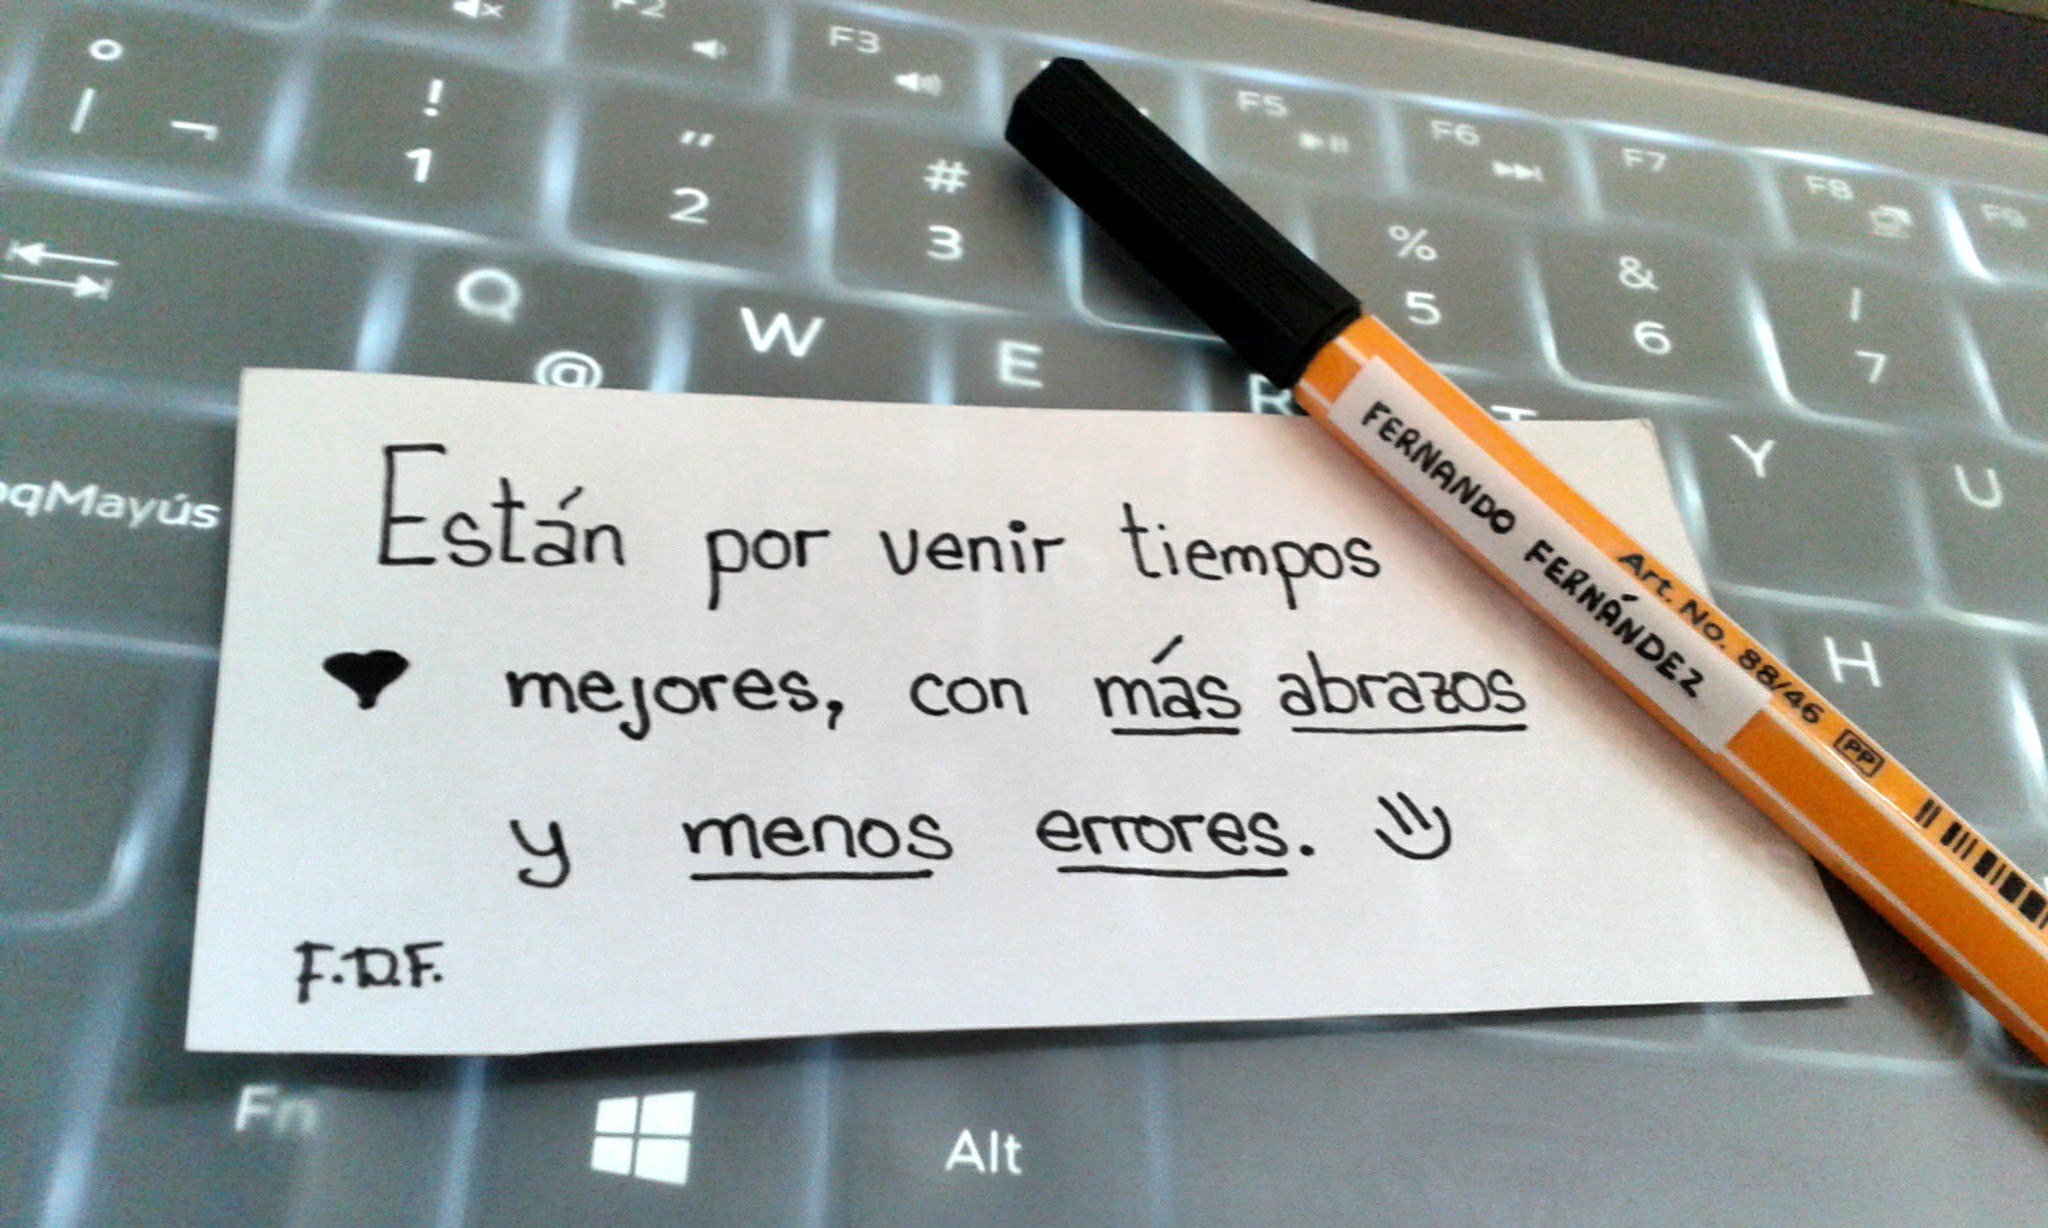 F2
F3
F5
F6
F7
F8
F9
° | ¬
! 1
" 2
# 3
% 5
& 6
7
Q @
W
E
R
T
Y
U
H
qMayús
Están por venir tiempos
mejores, con más abrazos
y menos errores.
F.D.F.
FERNANDO FERNÁNDEZ
Art. No. 88/46 PP
Fn
Alt